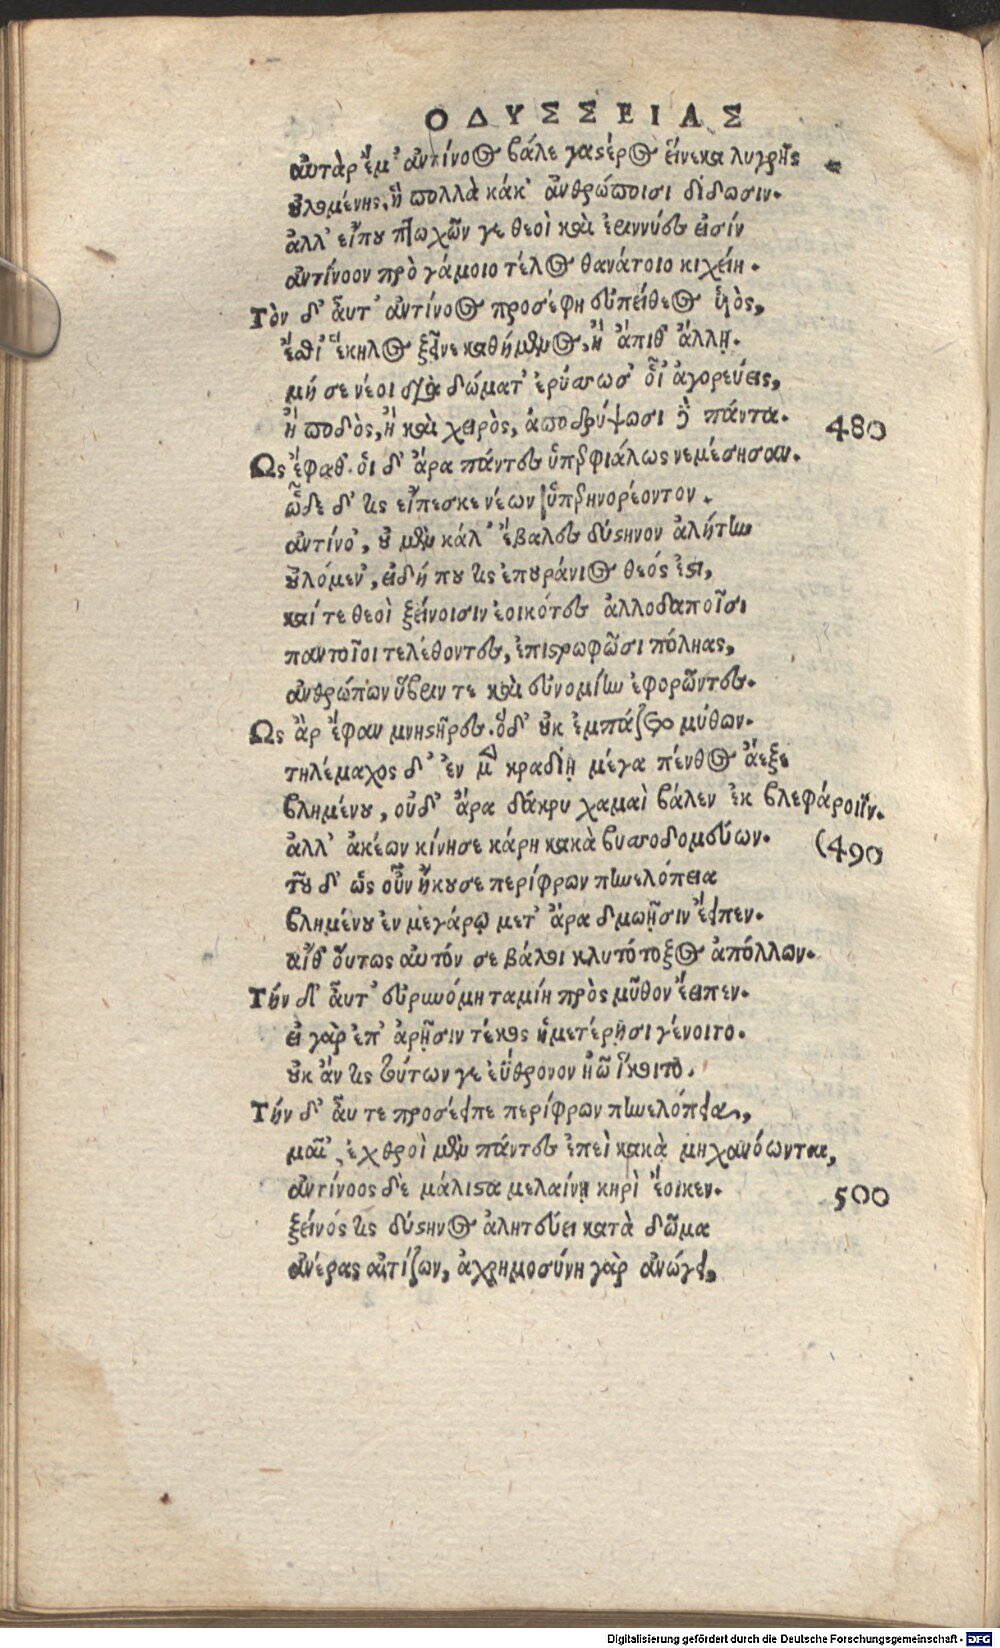 ΟΔΥΣΣΕΙΑΣ
αὐτὰρ ἔμ' ἀντίνοος βάλε γαστέρος εἵνεκα λυγρῆς
οὐλομένης, ἣ πολλὰ κάκ' ἀνθρώποισι δίδωσιν.
ἀλλ' εἴπου πτωχῶν γε θεοὶ καὶ ἐριννύες εἰσίν
ἀντίνοον πρὸ γάμοιο τέλος θανάτοιο κιχείη.
Τὸν δ' αὖτ' ἀντίνοος προσέφη εὐπείθεος υἱὸς,
ἔσθι' ἕκηλος ξεῖνε καθήμενος, ἢ ἄπιθ' ἄλλη.
μή σε νέοι διὰ δώματ' ἐρύσσωσ' οἷ' ἀγορεύεις,
ἢ ποδὸς, ἢ καὶ χειρὸς, ἀποδρύψωσι δὲ πάντα.
480
Ως ἔφαθ'. οἱ δ' ἄρα πάντες ὑπερφιάλως νεμέσησαν.
ὧδε δ' τις εἴπεσκε νέων ὑπερηνορέοντον.
ἀντίνο', οὐ μὲν κάλ' ἔβαλες δύστηνον ἀλήτην
οὐλόμεν', εἰ δή που τις ἐπουράνιος θεός ἐστι,
καί τε θεοὶ ξείνοισιν ἐοικότες ἀλλοδαποῖσι
παντοῖοι τελέθοντες, ἐπιστρωφῶσι πόληας,
ἀνθρώπων ὕβριν τε καὶ εὐνομίην ἐφορῶντες.
Ως ἂρ ἔφαν μνηστῆρες. ὅδ' οὐκ ἐμπάζετο μύθων.
τηλέμαχος δ' ἐν μὲν κραδίῃ μέγα πένθος ἄεξε
βλημένου, οὐδ' ἄρα δάκρυ χαμαὶ βάλεν ἐκ βλεφάροιϊν.
ἀλλ' ἀκέων κίνησε κάρη κακὰ βυσσοδομεύων.
(490
τοῦ δ' ὡς οὖν ἤκουσε περίφρων πηνελόπεια
βλημένου ἐν μεγάρῳ μετ' ἄρα δμωῇσιν ἔειπεν.
αἴθ' οὕτως αὐτόν σε βάλοι κλυτότοξος ἀπόλλων.
Τήν δ' αὖτ' εὐρυνόμη ταμίη πρὸς μῦθον ἔειπεν.
εἰ γὰρ ἐπ' ἀρῇσιν τέλος ἡμετέρῃσι γένοιτο.
οὐκ ἄν τις τούτων γε ἐΰθρονον ἠῶ ἵκοιτο.
Τήν δ' αὖ τε προσέειπε περίφρων πηνελόπεια,
μαῖ', ἐχθροὶ μὲν πάντες ἐπεὶ κακὰ μηχανόωνται,
ἀντίνοος δὲ μάλιστα μελαίνῃ κηρὶ ἔοικεν.
500
ξεῖνός τις δύστηνος ἀλητεύει κατὰ δῶμα
ἀνέρας αἰτίζων, ἀχρημοσύνη γὰρ ἀνώγει,
Digitalisierung gefördert durch die Deutsche Forschungsgemeinschaft - DFG